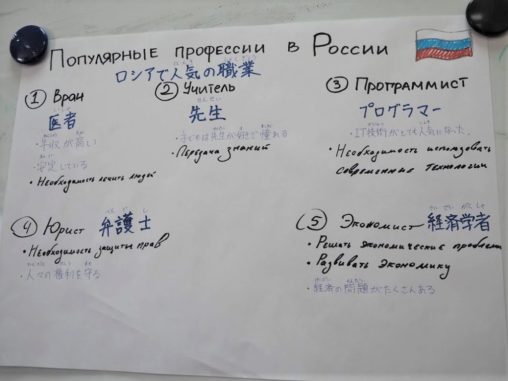 Популярные профессии в России
ロシアで人気の職業
① Врач
医者
・年収が高い
・安定している
• Необходимость лечить людей
② Учитель
先生
• Передача знаний
③ Программист
プログラマー
・IT技術がとても人気になった。
• Необходимость использовать
современные технологии
④ Юрист 弁護士
• Необходимость защиты прав
・人々の権利を守る
⑤ Экономист 経済学者
• Решать экономические проблемы
• Развивать экономику
・経済の問題がたくさんある